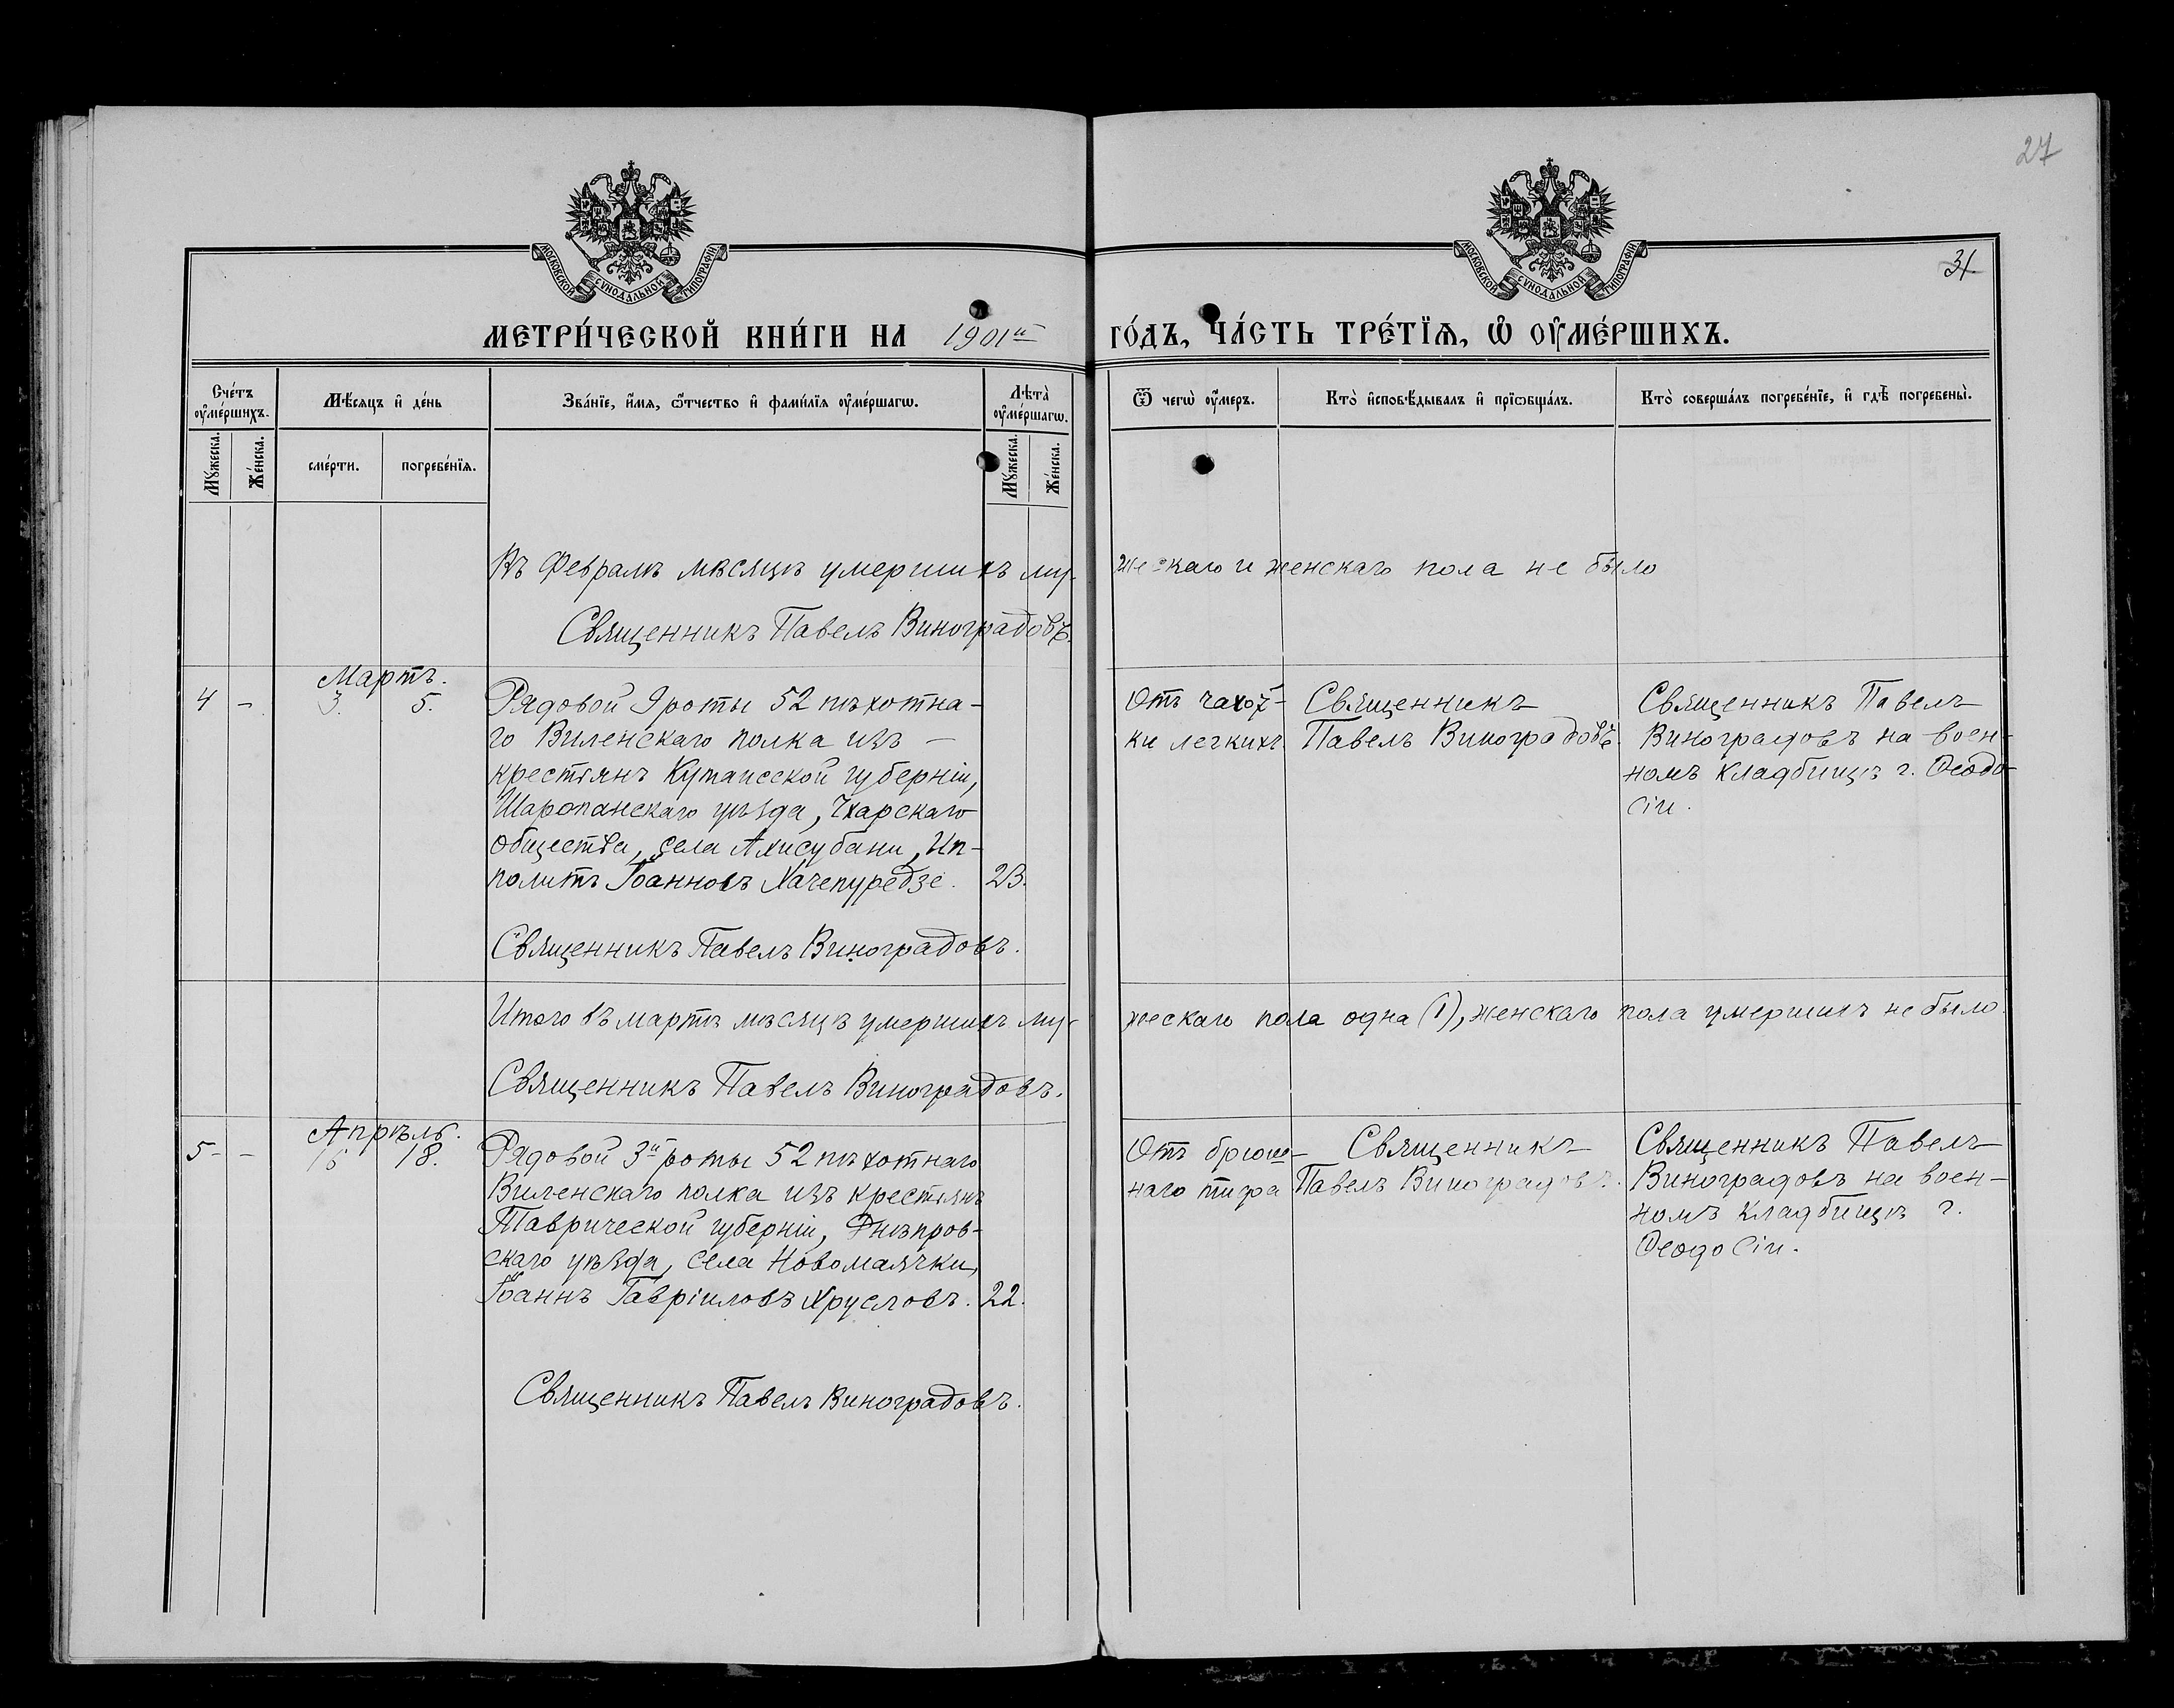 27
МОСКОВСКОЙ СѴНОДАЛЬНОЙ ТИПОГРАФІИ
МОСКОВСКОЙ СѴНОДАЛЬНОЙ ТИПОГРАФІИ
31
МЕТРИ́ЧЕСКОЙ КНИ́ГИ НА 1901й ГО́ДЪ, ЧА́СТЬ ТРЕ́ТЇѦ, Ѡ҆ ОУ҆МЕ́РШИХЪ.
Сче́тъ оу҆ме́ршихъ.
Мꙋ́жеска.
Же́нска.
Мѣ́сяцъ и҆ де́нь
сме́рти.
погребе́нїѧ.
Зва́нїе, и҆́мѧ, ѻ҆́тчество и҆ фами́лїѧ оу҆ме́ршагѡ.
Лѣта̀ оу҆ме́ршагѡ.
Мꙋ́жеска.
Же́нска.
Ѿ чегѡ̀ оу҆́меръ.
Кто̀ и҆сповѣ́дывалъ и҆ прїѡбща́лъ.
Кто̀ соверша́лъ погребе́нїе, и҆ гдѣ̀ погребены̀.
Въ Февралѣ мѣсяцѣ умершихъ му-
жескаго и женскаго пола не было
Священникъ Павелъ Виноградовъ.
Мартъ.
4 - 3. 5.
Рядовой 9 роты 52 пѣхотна-
го Виленскаго полка изъ —
крестьянъ Кутаисской губерніи,
Шаропанскаго уѣзда, Чхарскаго
общества, села Ахисубани, Ип-
политъ Іоанновъ Хачепуредзе. 23.
Отъ чахот-
ки легкихъ
Священникъ
Павелъ Виноградовъ.
Священникъ Павелъ
Виноградовъ на воен-
номъ кладбищѣ г. Ѳеодо-
сіи.
Священникъ Павелъ Виноградовъ.
Итого въ мартѣ мѣсяцѣ умершихъ му-
жескаго пола одна (1), женскаго пола умершихъ не было.
Священникъ Павелъ Виноградовъ.
Апрѣль.
5 - - 16 18.
Рядовой 3й роты 52 пѣхотнаго
Виленскаго полка изъ крестьянъ
Таврической губерніи, Днѣпров-
скаго уѣзда, села Новомаячки,
Іоаннъ Гавріиловъ Хрусловъ. 22.
Отъ брюш-
наго тифа
Священникъ
Павелъ Виноградовъ.
Священникъ Павелъ
Виноградовъ на воен-
номъ кладбищѣ г.
Ѳеодосіи.
Священникъ Павелъ Виноградовъ.